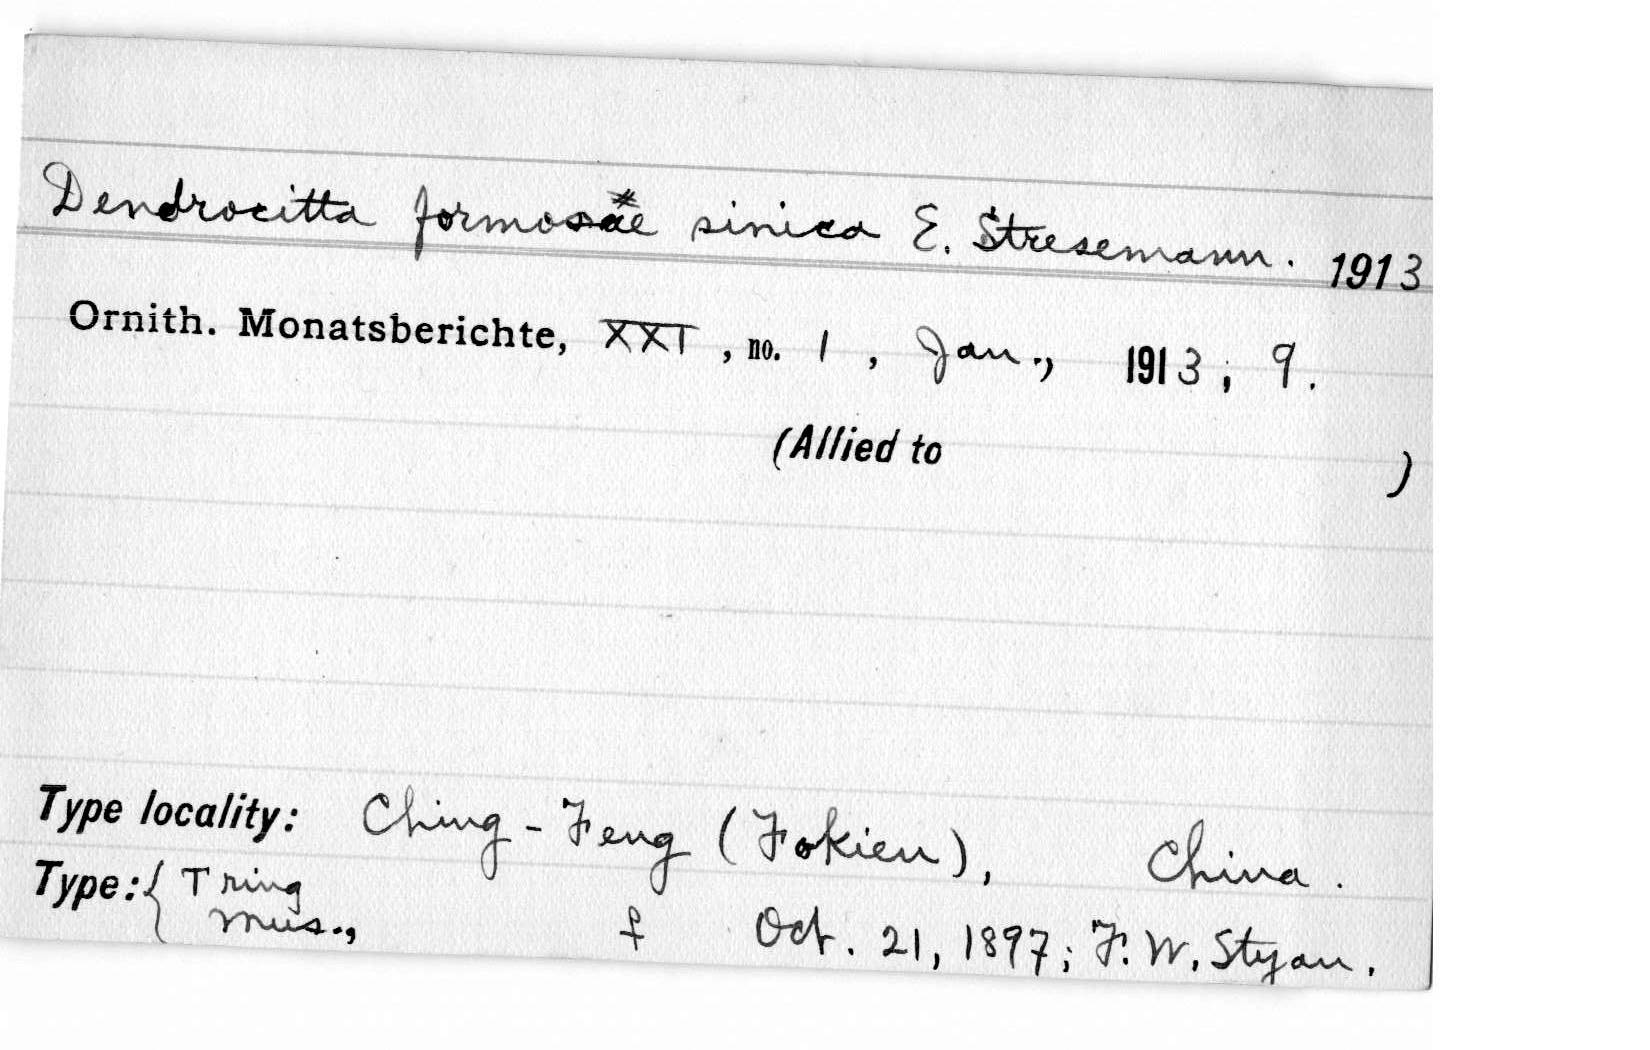 Dendrocitta formosae sinica E. Stresemann. 1913
Ornith. Monatsberichte, XXI, no. 1, Jan., 1913, 9.
(Allied to )
Type locality: Ching-Feng (Fokien), China.
Type: { Tring
Mus., f Oct. 21, 1897; F. W. Styan.